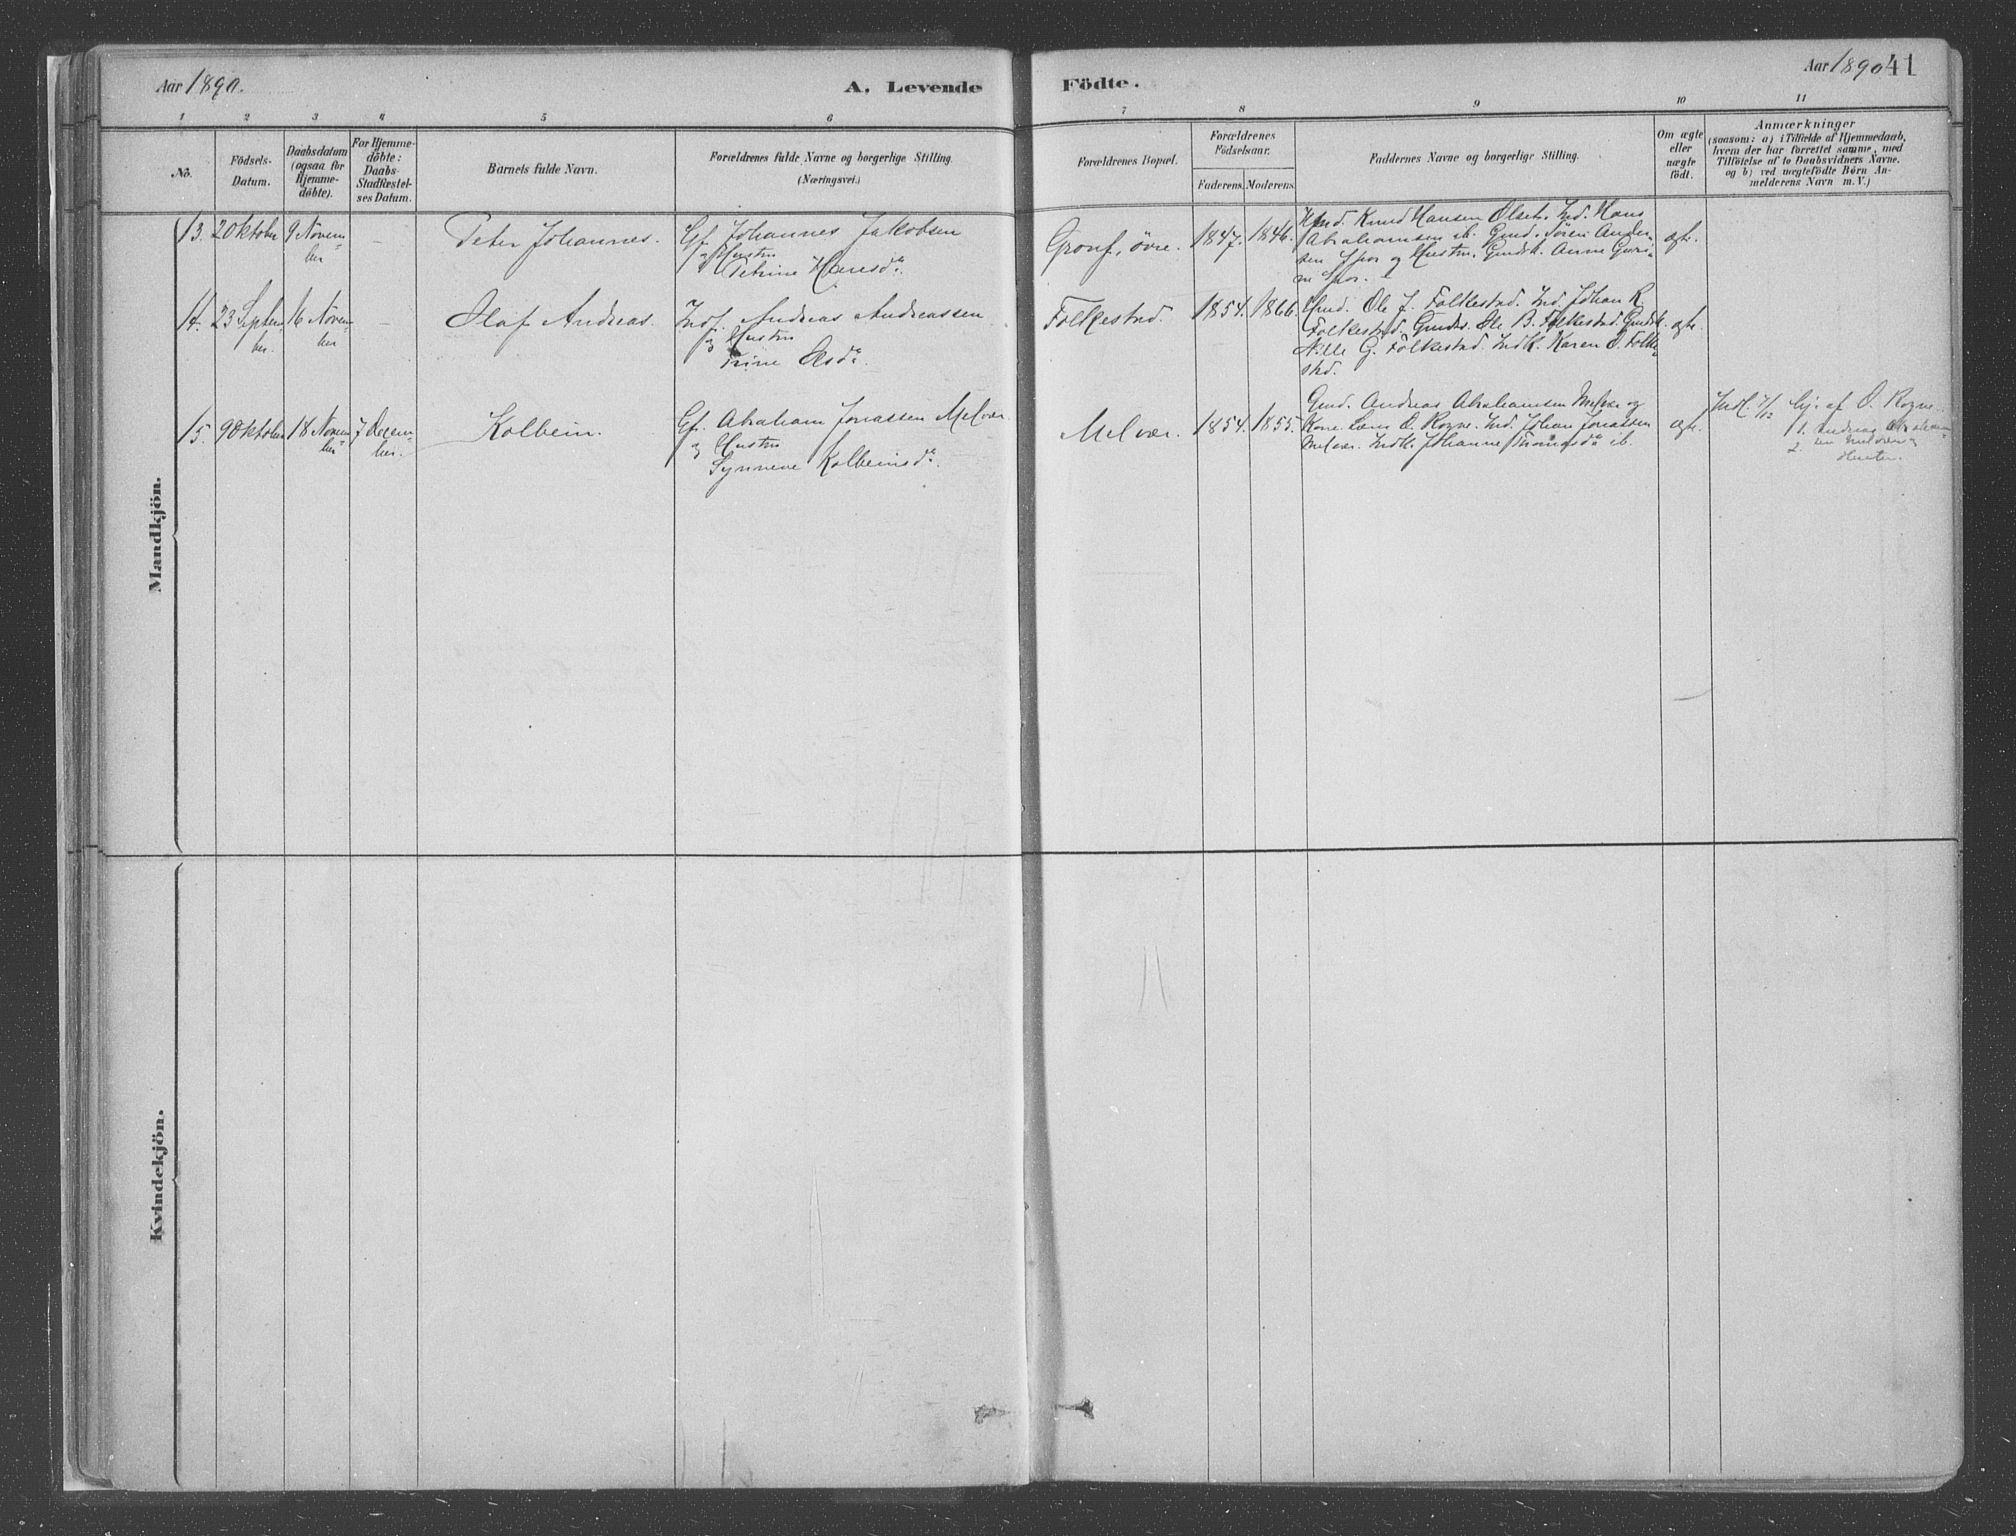 Aar 1890.
A. Levende Födte.
Aar 1890 41
1 2 3 4 5 6 7 8 9 10 11
No.
Födsels-Datum.
Daabsdatum (ogsaa for Hjemme-döbte).
For Hjemme-döbte: Daabs-Stadfæstel-ses Datum.
Barnets fulde Navn.
Forældrenes fulde Navne og borgerlige Stilling.
(Næringsvei.)
Forældrenes Bopæl.
Forældrenes Födselsaar.
Faderens. Moderens.
Faddernes Navne og borgerlige Stilling.
Om ægte eller uægte födt.
Anmærkninger
(saasom: a) i Tilfælde af Hjemmedaab,
hvem der har forrettet samme, med
Tilföielse af to Daabsvidners Navne.
og b) ved uægtefödte Börn An-
melderens Navn m. V.)
Mandkjön.
13. 2 Oktober 9 Novem
ber
— Peter Johannes.
Gf. Johannes Jakobsen
og Hustru
Petrine Hansd.
Grouf, övre. 1847. 1846.
Gmd. Knud Hansen Ølset. Ind. Hans
Abrahamsen ib. Gmd. Søren Ander
sen og Hustru. Gmdsk. Anne
ægte.
14. 23 Septem
ber. 16 Novem
ber
— Olaf Andreas.
Indf. Andreas Andreassen
og Hustru
Trine Olsd.
Folkestad. 1854. 1866.
Gmd. Ole J. Folkestad. Ind. Johan R.
Folkestad. Gmds. Ole B. Folkestad. Gmdsk.
Nille G. Folkestad. Indk. Karen O. Folke
stad.
ægte.
15. 9 Oktober 18 Novem
ber 7 Decem
ber.
Kolbein.
Gf. Abraham Jonassen Melvær
og Hustru
Synneve Kolbeinsd.
Melvær. 1854. 1855.
Gmd. Andreas Abrahamsen Melvær og
Kone. O. Rogne. Ind. Johan Jonassen
Melvær. Indk. Johanne Thomasd. ib.
ægte.
Indl. 7/12 hj. af O. Rogne.
1. Andreas Abraham
2. sen Melvær og
Hustru.
Kvindekjön.